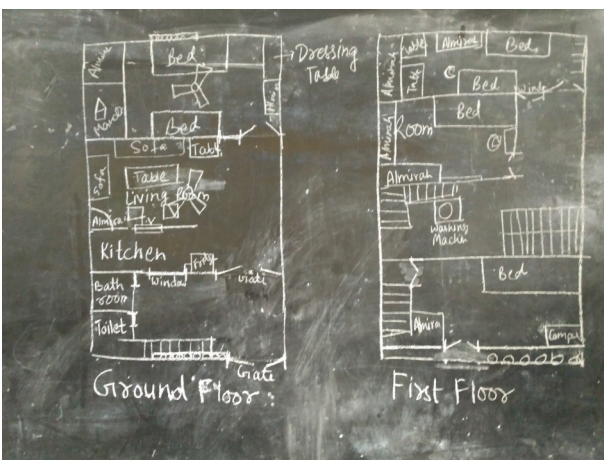 Bed
Almira
Dressing
Table
Bed
Sofa
Table
Sofa
Table
Living Room
Almira
T.V
Kitchen
Bath
room
Window
Toilet
Gate
Ground Floor
Table
Almirah
Bed
Almirah
Table
Bed
Window
Almirah
Room
Bed
Almirah
Washing
Machin
Bed
Almira
First Floor